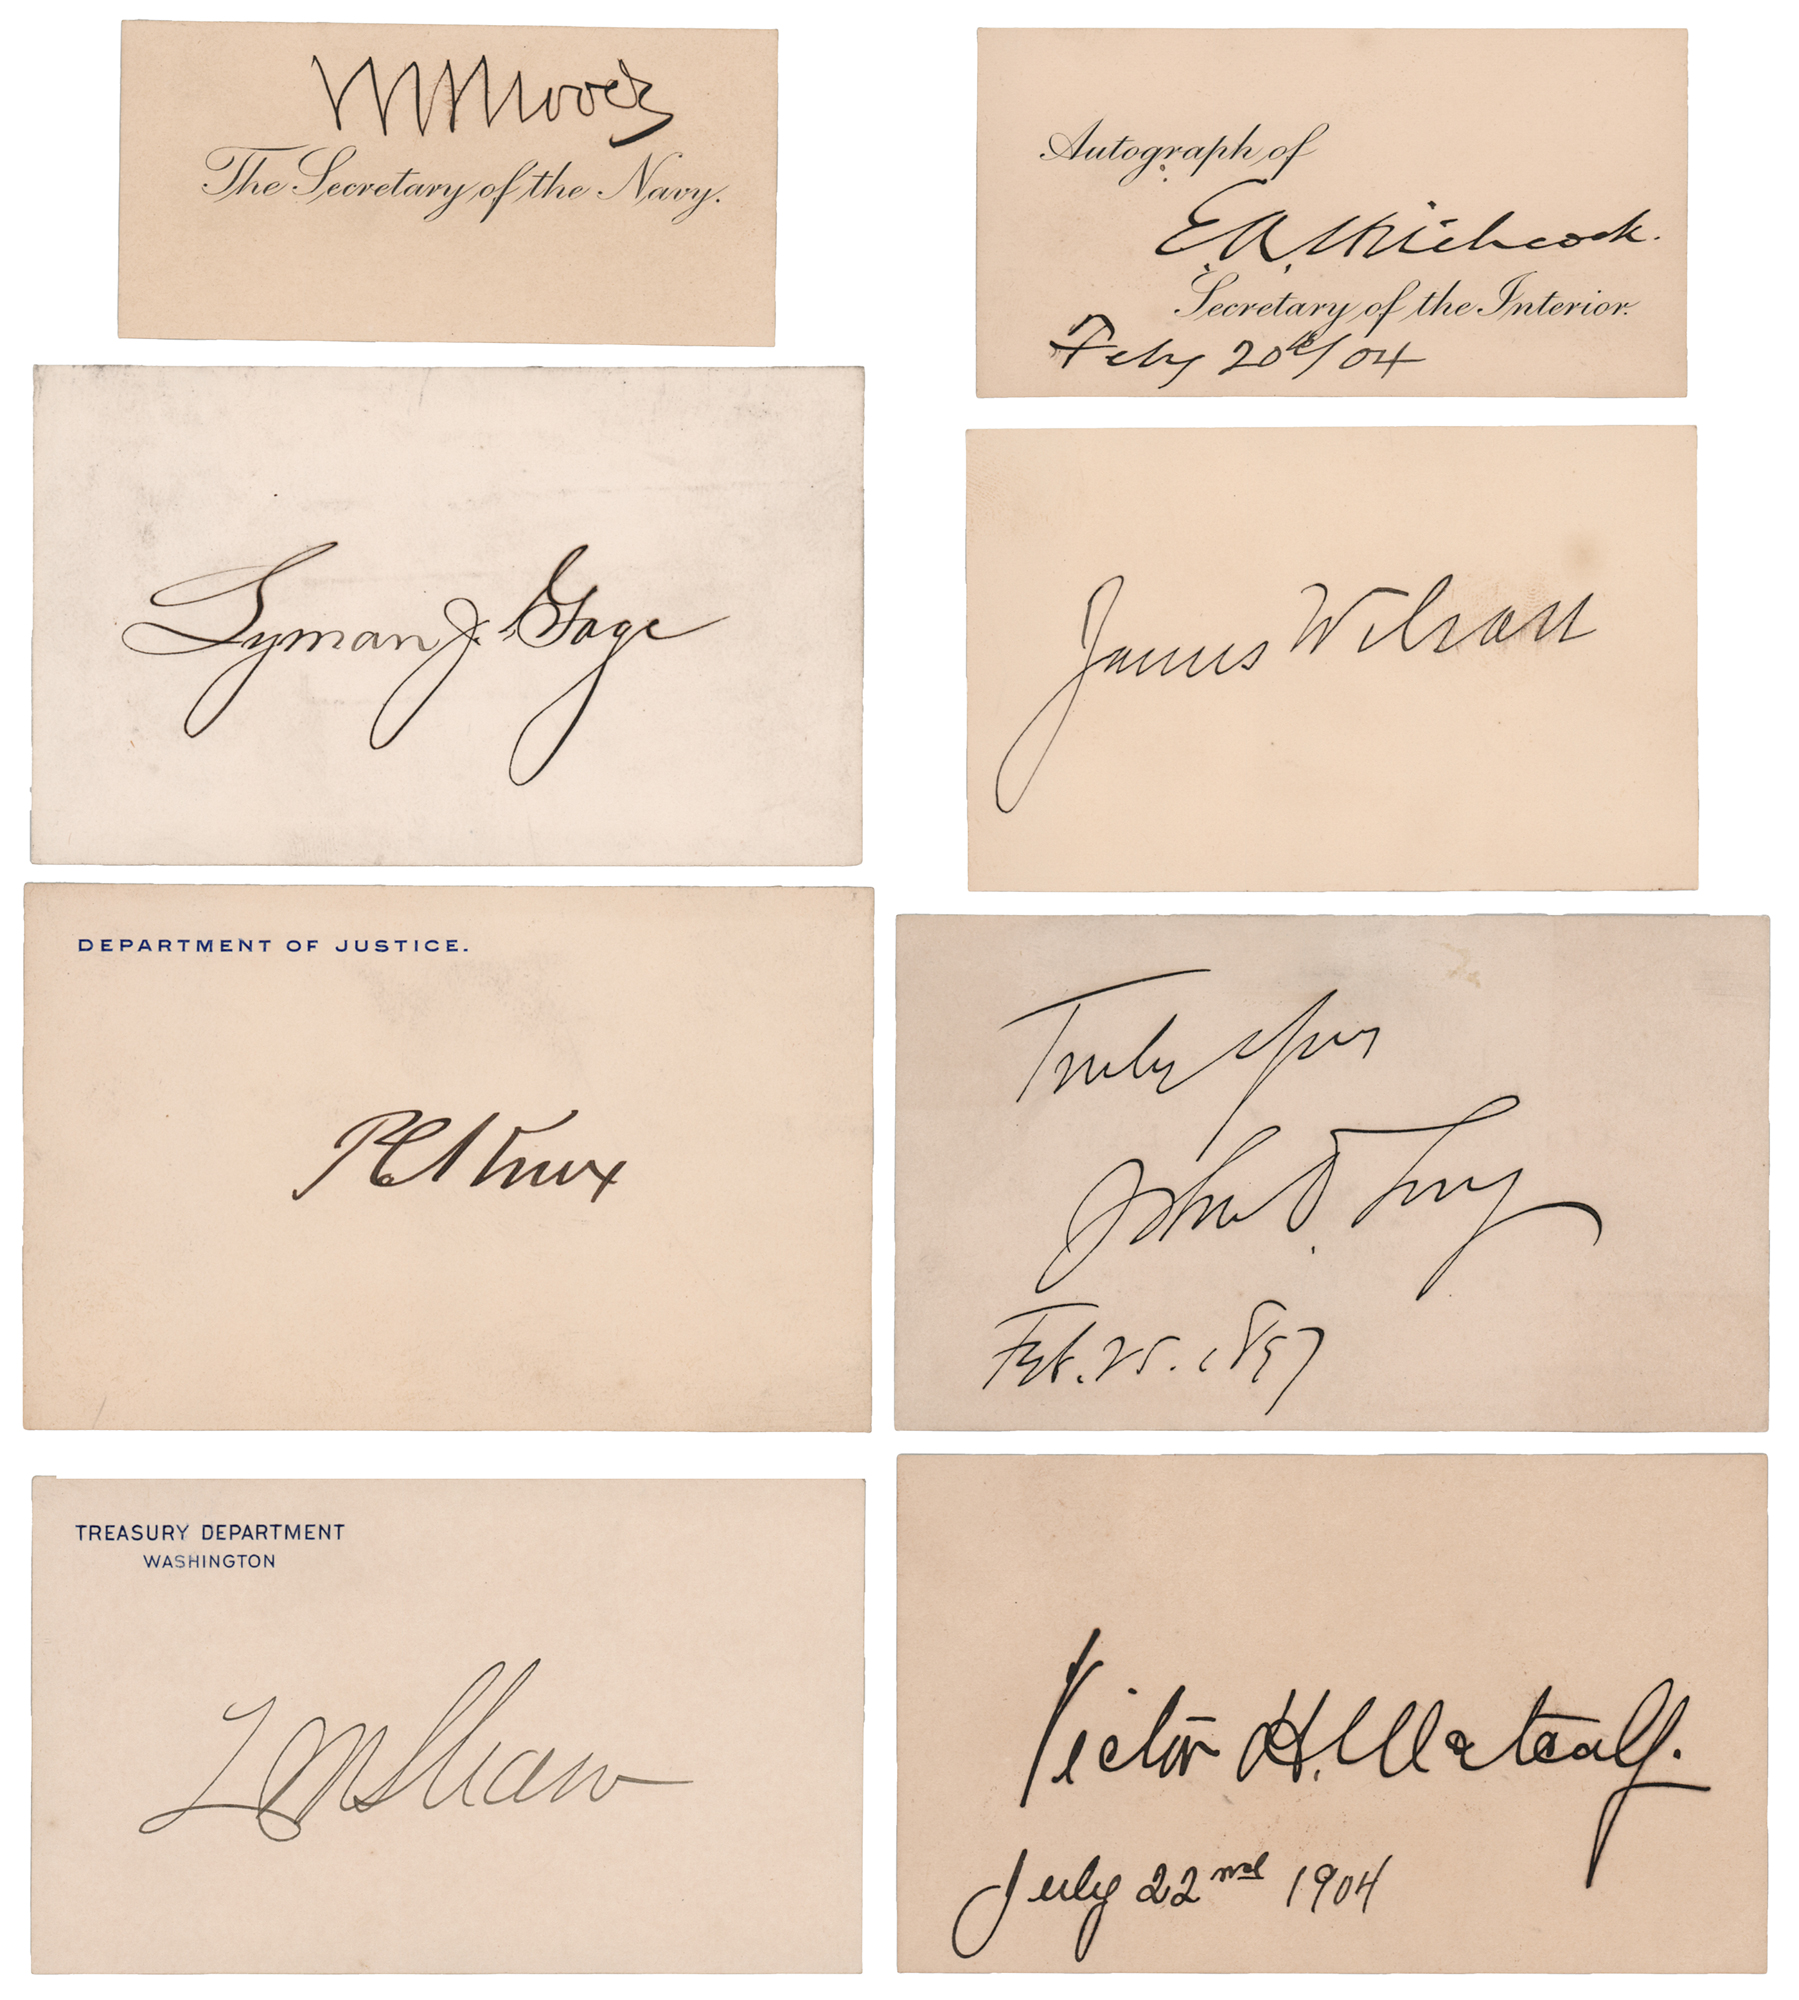 W H Moody
The Secretary of the Navy.
Autograph of
E. A. Hitchcock.
Secretary of the Interior.
Feby 20th/04
Lyman J. Gage
James Wilson
DEPARTMENT OF JUSTICE.
P C Knox
Truly yours
John D. Long
Feb. 25. 1897
TREASURY DEPARTMENT
WASHINGTON
L M Shaw
Victor H. Metcalf.
July 22nd 1904